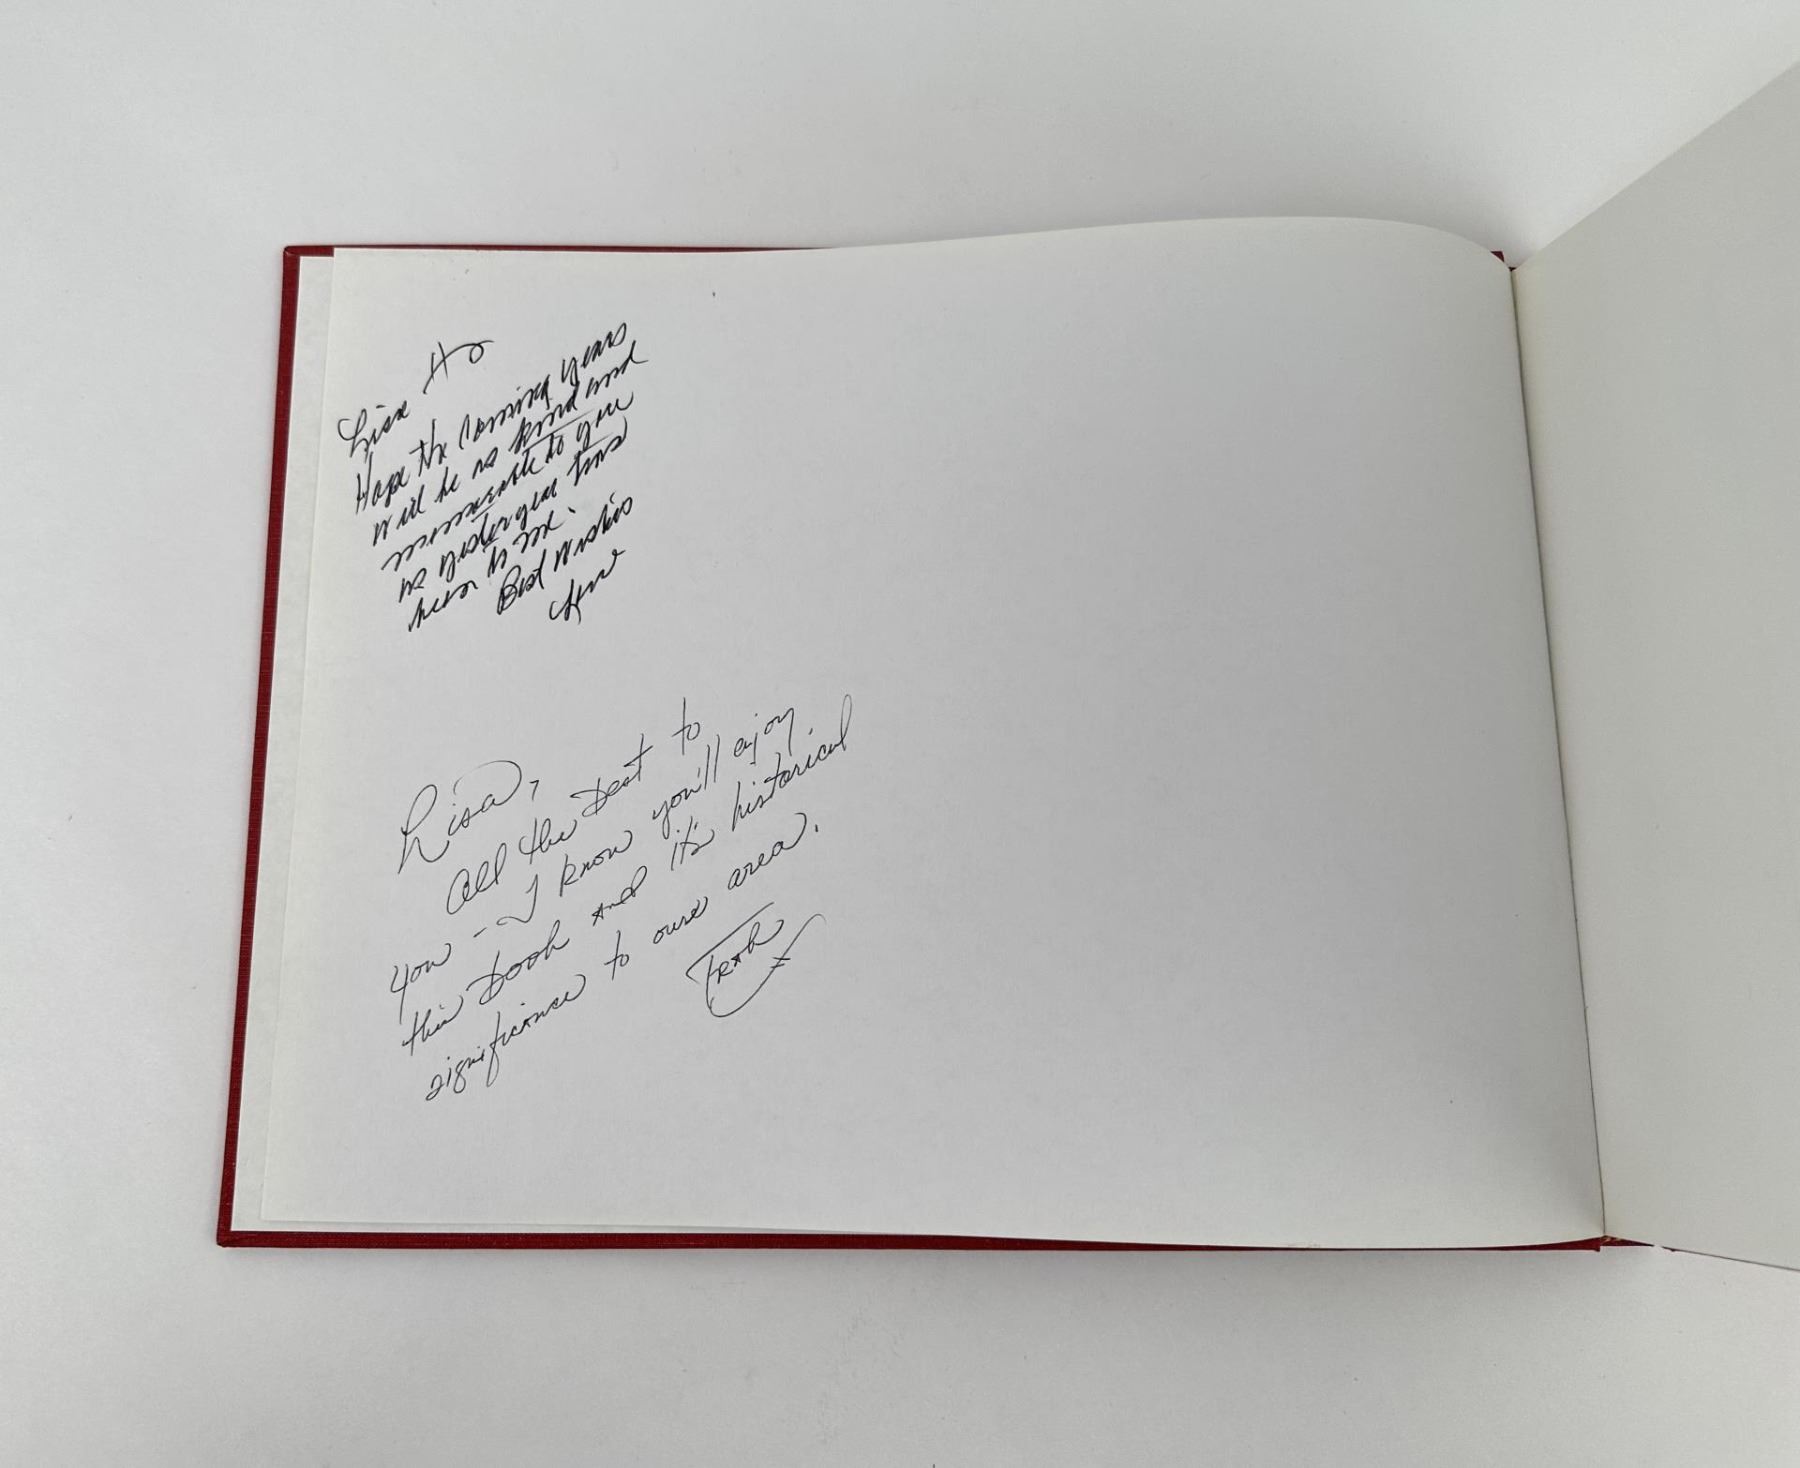 Lisa Ho
Hope the coming years
will be as kind and
memorable to you
as yesteryear has
been to me.
Best wishes
Lisa,
All the best to
you - I know you'll enjoy
this book and it's historical
significance to our area.